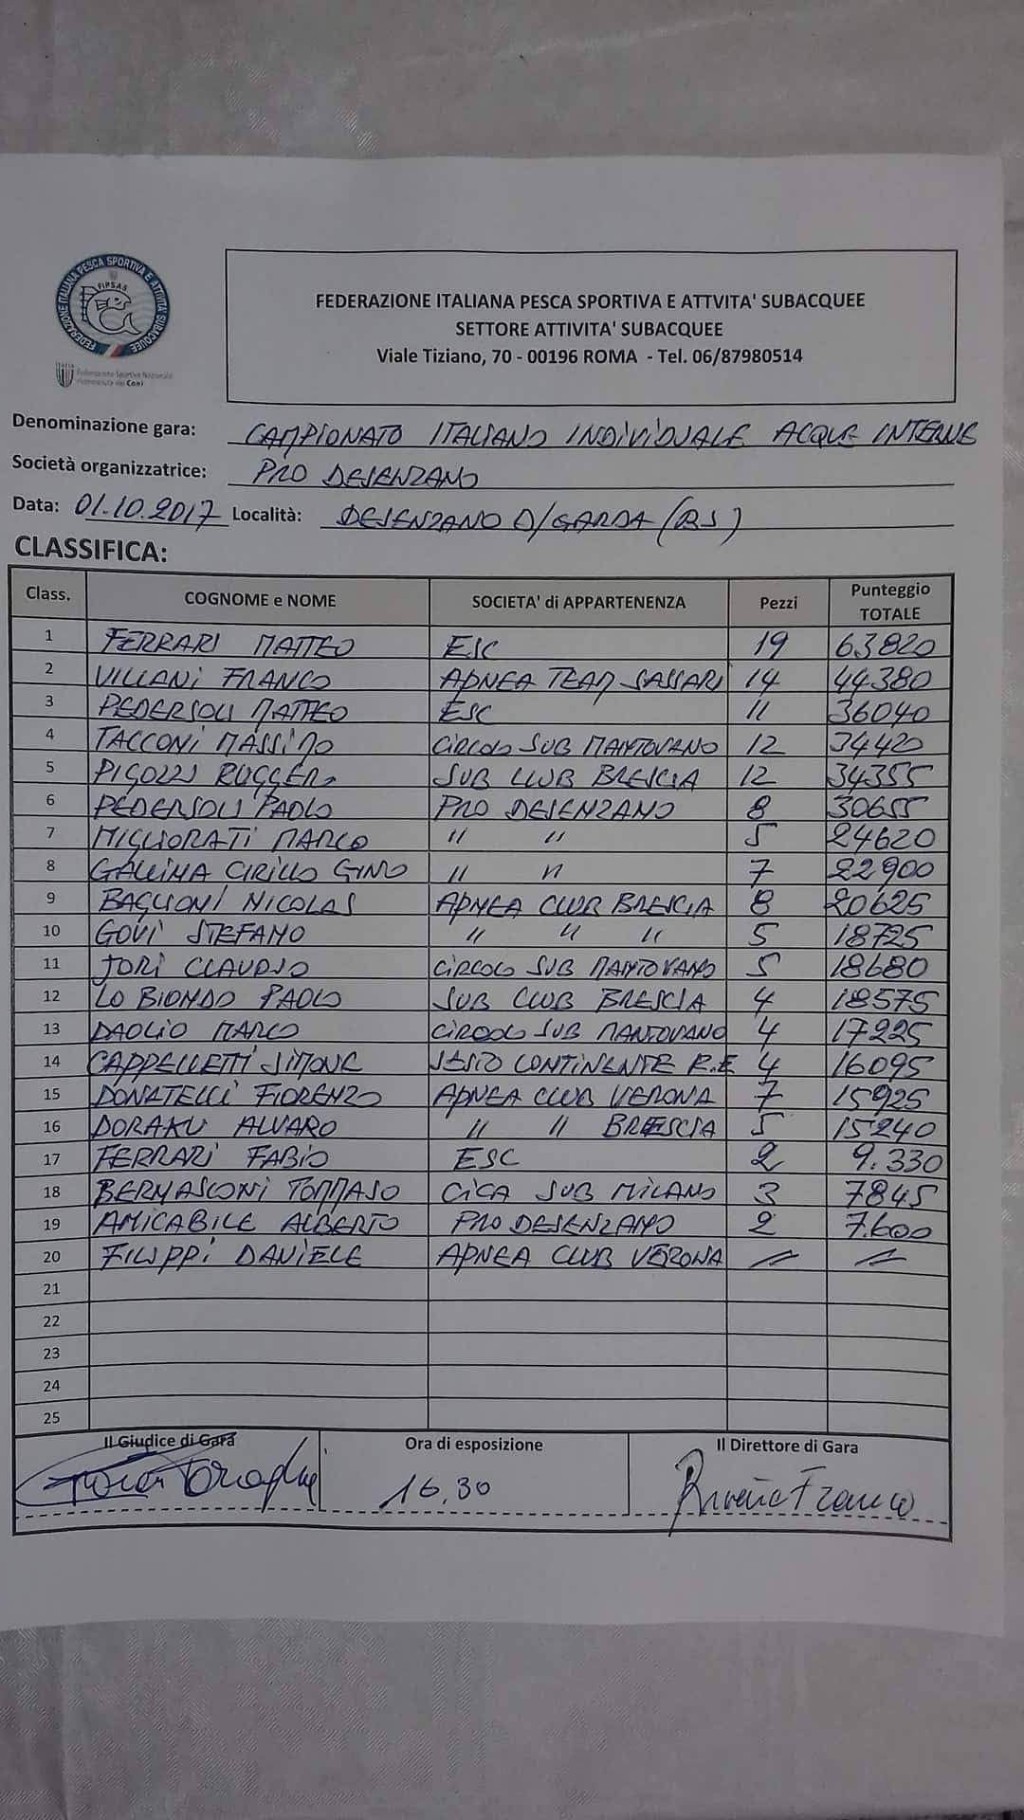 FEDERAZIONE ITALIANA PESCA SPORTIVA E ATTIVITA' SUBACQUEE
FIPSAS
FEDERAZIONE ITALIANA PESCA SPORTIVA E ATTVITA' SUBACQUEE
SETTORE ATTIVITA' SUBACQUEE
Viale Tiziano, 70 - 00196 ROMA - Tel. 06/87980514
Federazione Sportiva Nazionale
riconosciuta dal Coni
Denominazione gara: CAMPIONATO ITALIANO INDIVIDUALE ACQUE INTERNE
Società organizzatrice: PRO DESENZANO
Data: 01.10.2017 Località: DESENZANO D/GARDA (BS)
CLASSIFICA:
Class. COGNOME e NOME SOCIETA' di APPARTENENZA Pezzi Punteggio TOTALE
1 FERRARI MATTEO ESC 19 63820
2 VILLANI FRANCO APNEA TEAM SASSARI 14 44380
3 PEDERSOLI MATTEO ESC 11 36040
4 TACCONI MASSIMO CIRCOLO SUB MANTOVANO 12 34420
5 PIGOZZI RUGGERO SUB CLUB BRESCIA 12 34355
6 PEDERSOLI PAOLO PRO DESENZANO 8 30655
7 MIGLIORATI MARCO " " 5 24620
8 GALLINA CIRILLO GINO " " 7 22900
9 BAGLIONI NICOLAS APNEA CLUB BRESCIA 8 20625
10 GOVI STEFANO " " " 5 18725
11 JORI CLAUDIO CIRCOLO SUB MANTOVANO 5 18680
12 LO BIONDO PAOLO SUB CLUB BRESCIA 4 18575
13 DAOLIO MARCO CIRCOLO SUB MANTOVANO 4 17225
14 CAPPELLETTI SIMONE SESTO CONTINENTE R.E 4 16095
15 DONATELLI FIORENZO APNEA CLUB VERONA 7 15925
16 DORAKU ALVARO " " BRESCIA 5 15240
17 FERRARI FABIO ESC 2 9.330
18 BERNASCONI TOMMASO CICA SUB MILANO 3 7845
19 AMICABILE ALBERTO PRO DESENZANO 2 7.600
20 FILIPPI DANIELE APNEA CLUB VERONA = =
21
22
23
24
25
Il Giudice di Gara Ora di esposizione Il Direttore di Gara
16,30 Franco